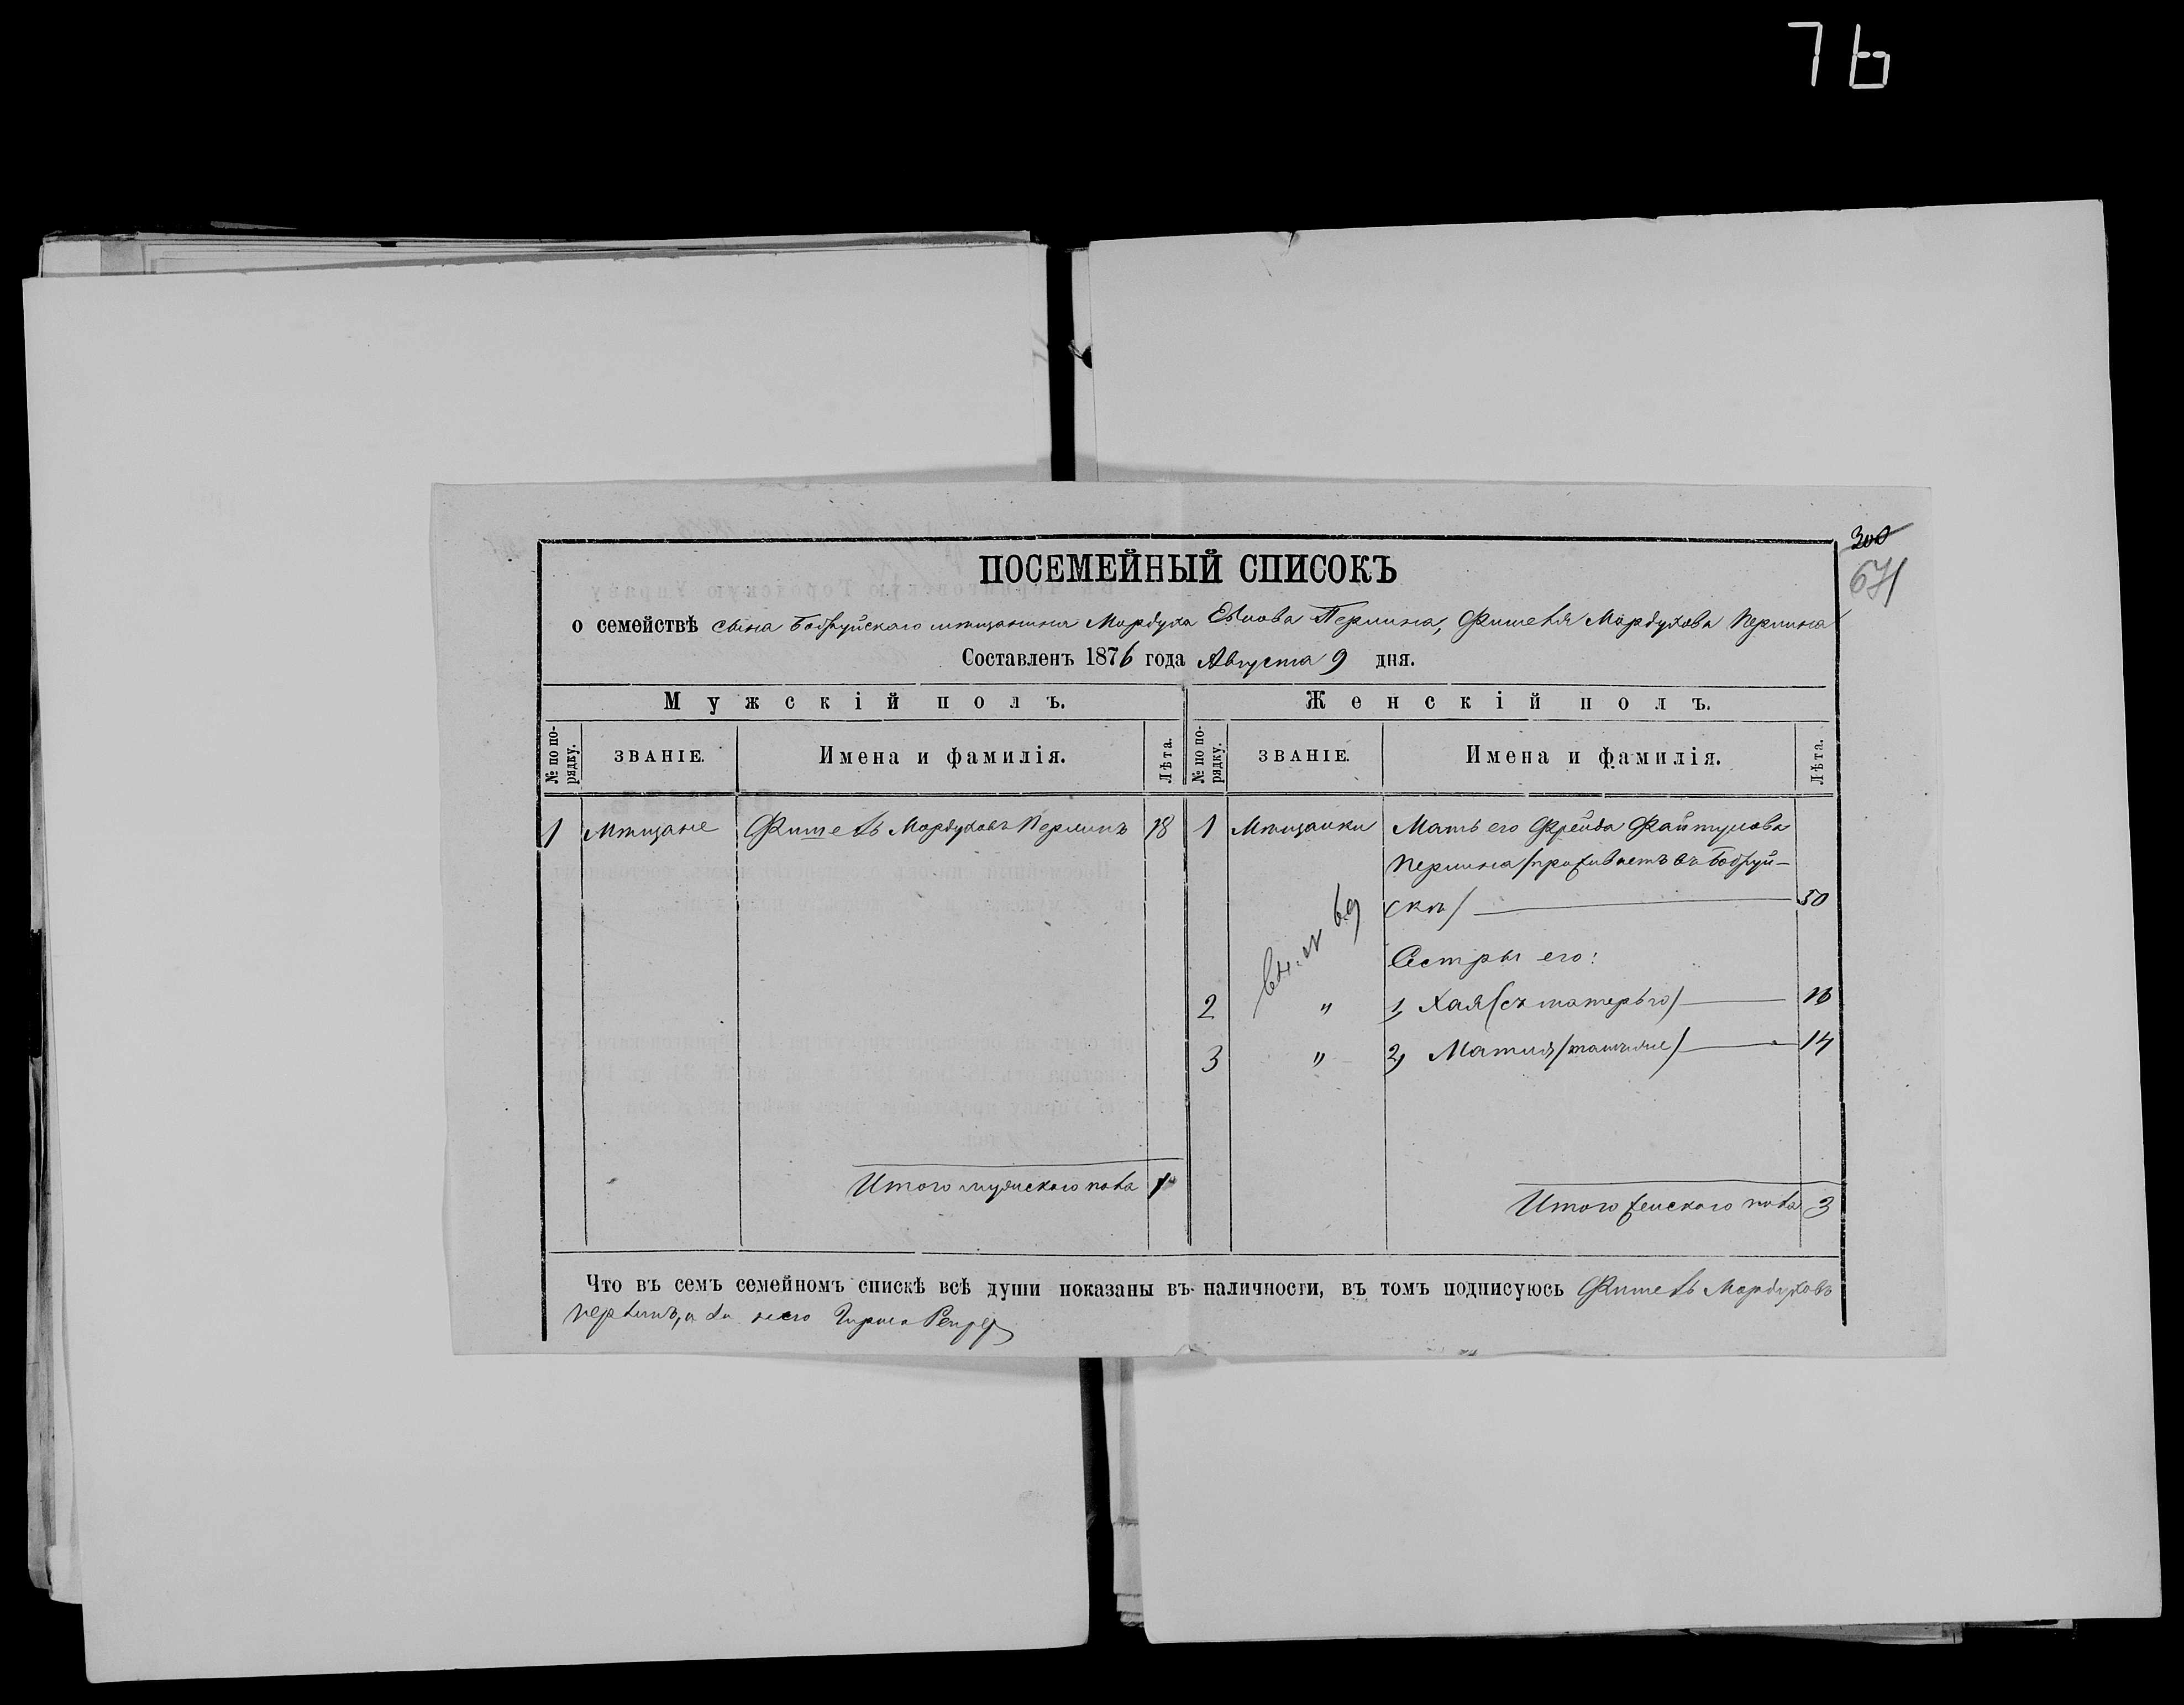 76
300
671
ПОСЕМЕЙНЫЙ СПИСОКЪ
о семействѣ сына Бобруйскаго мѣщанина Мордуха Евнова Перлина, Фишеля Мордухова Перлина
Составленъ 1876 года Августа 9 дня.
Мужскій полъ. Женскій полъ.
№ по порядку. ЗВАНІЕ. Имена и фамилія. Лѣта. № по порядку. ЗВАНІЕ. Имена и фамилія. Лѣта.
1 Мѣщане Фишель Мордуховъ Перлинъ 18 1 Мѣщанки Мать его Фрейда Файтулова
Перлина /проживаетъ въ Бобруй-
скѣ/ 50
№ 69
Сестры его:
2 " 1, Хая (съ матерью) 16
3 " 2, Матля /тамъже/ 14
Итого мужскаго пола 1
Итого женскаго пола 3
Что въ семъ семейномъ спискѣ всѣ души показаны въ наличности, въ томъ подписуюсь Фишель Мордуховъ
Перлинъ, а за него